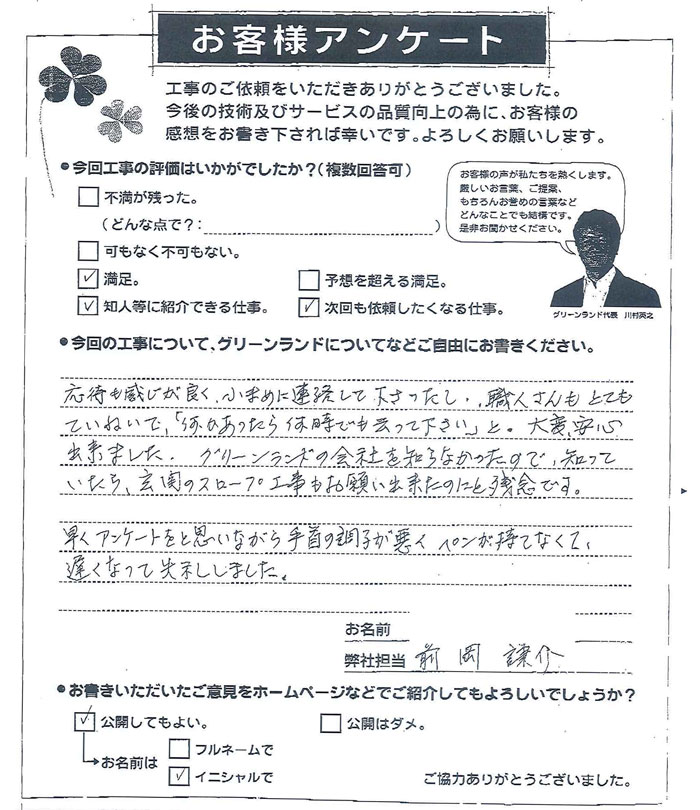 お客様アンケート
工事のご依頼をいただきありがとうございました。
今後の技術及びサービスの品質向上の為に、お客様の
感想をお書き下されば幸いです。よろしくお願いします。
●今回工事の評価はいかがでしたか?(複数回答可)
不満が残った。
(どんな点で?: )
可もなく不可もない。
☑ 満足。
予想を超える満足。
☑ 知人等に紹介できる仕事。
☑ 次回も依頼したくなる仕事。
お客様の声が私たちを熱くします。
厳しいお言葉、ご提案、
もちろんお誉めの言葉など
どんなことでも結構です。
是非お聞かせください。
グリーンランド代表 川村英之
●今回の工事について、グリーンランドについてなどご自由にお書きください。
応待も感じが良く、小まめに連絡して下さったし、職人さんもとても
ていねいで、「何かあったら何時でも云って下さい」と。大変、安心
出来ました。グリーンランドの会社を知らなかったので、知って
いたら、玄関のスロープ工事もお願い出来たのにと残念です。
早くアンケートをと思いながら手首の調子が悪くペンが持てなくて、
遅くなって失礼しました。
お名前
弊社担当 前岡 謙介
●お書きいただいたご意見をホームページなどでご紹介してもよろしいでしょうか?
☑ 公開してもよい。
公開はダメ。
お名前は
フルネームで
☑ イニシャルで
ご協力ありがとうございました。